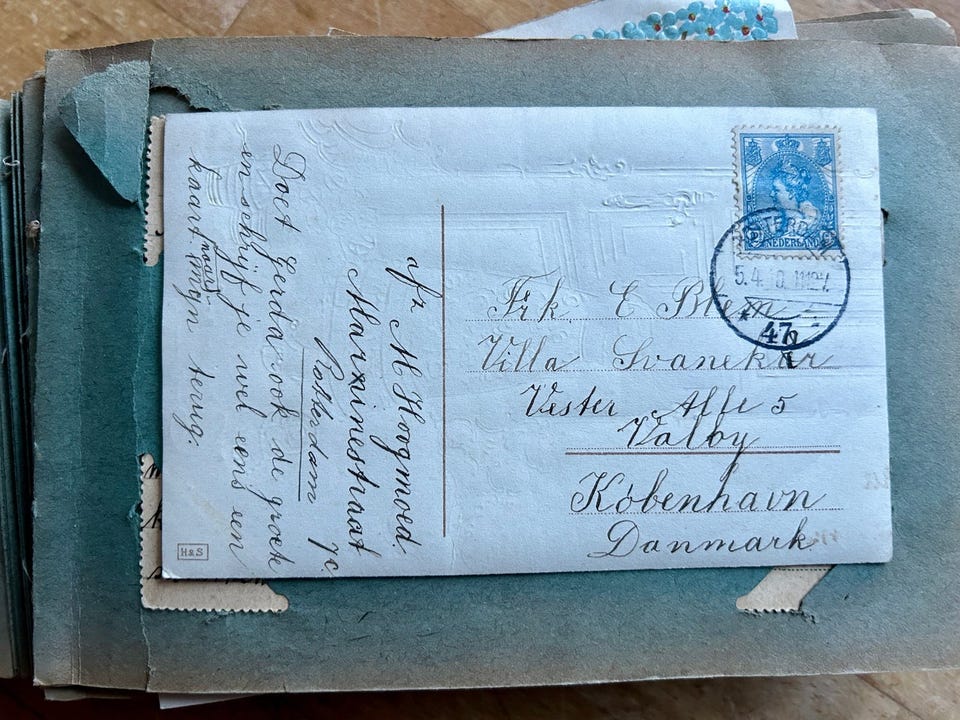 Doet Gerda ook de groete
en schrijf je wel eens een
kaart naar
terug.
afz M Hoogmoed.
Marxinestraat
7c.
Rotterdam
Frk. E Blem
Villa Svanekær
Vester Alle 5
Valby
København
Danmark.
NEDERLAND
5.4.10. 11-12V.
47
H&S